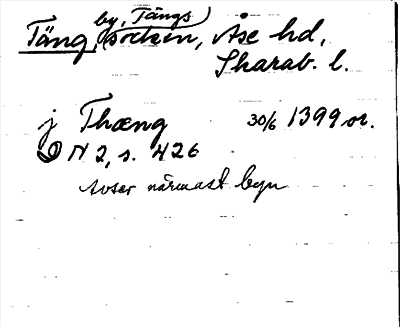 by, Tängs
Täng, socken, Åse hd,
Skarab. l.
j Thæng 30/6 1399 or.
N 2, s. 426
Avser närmast byn